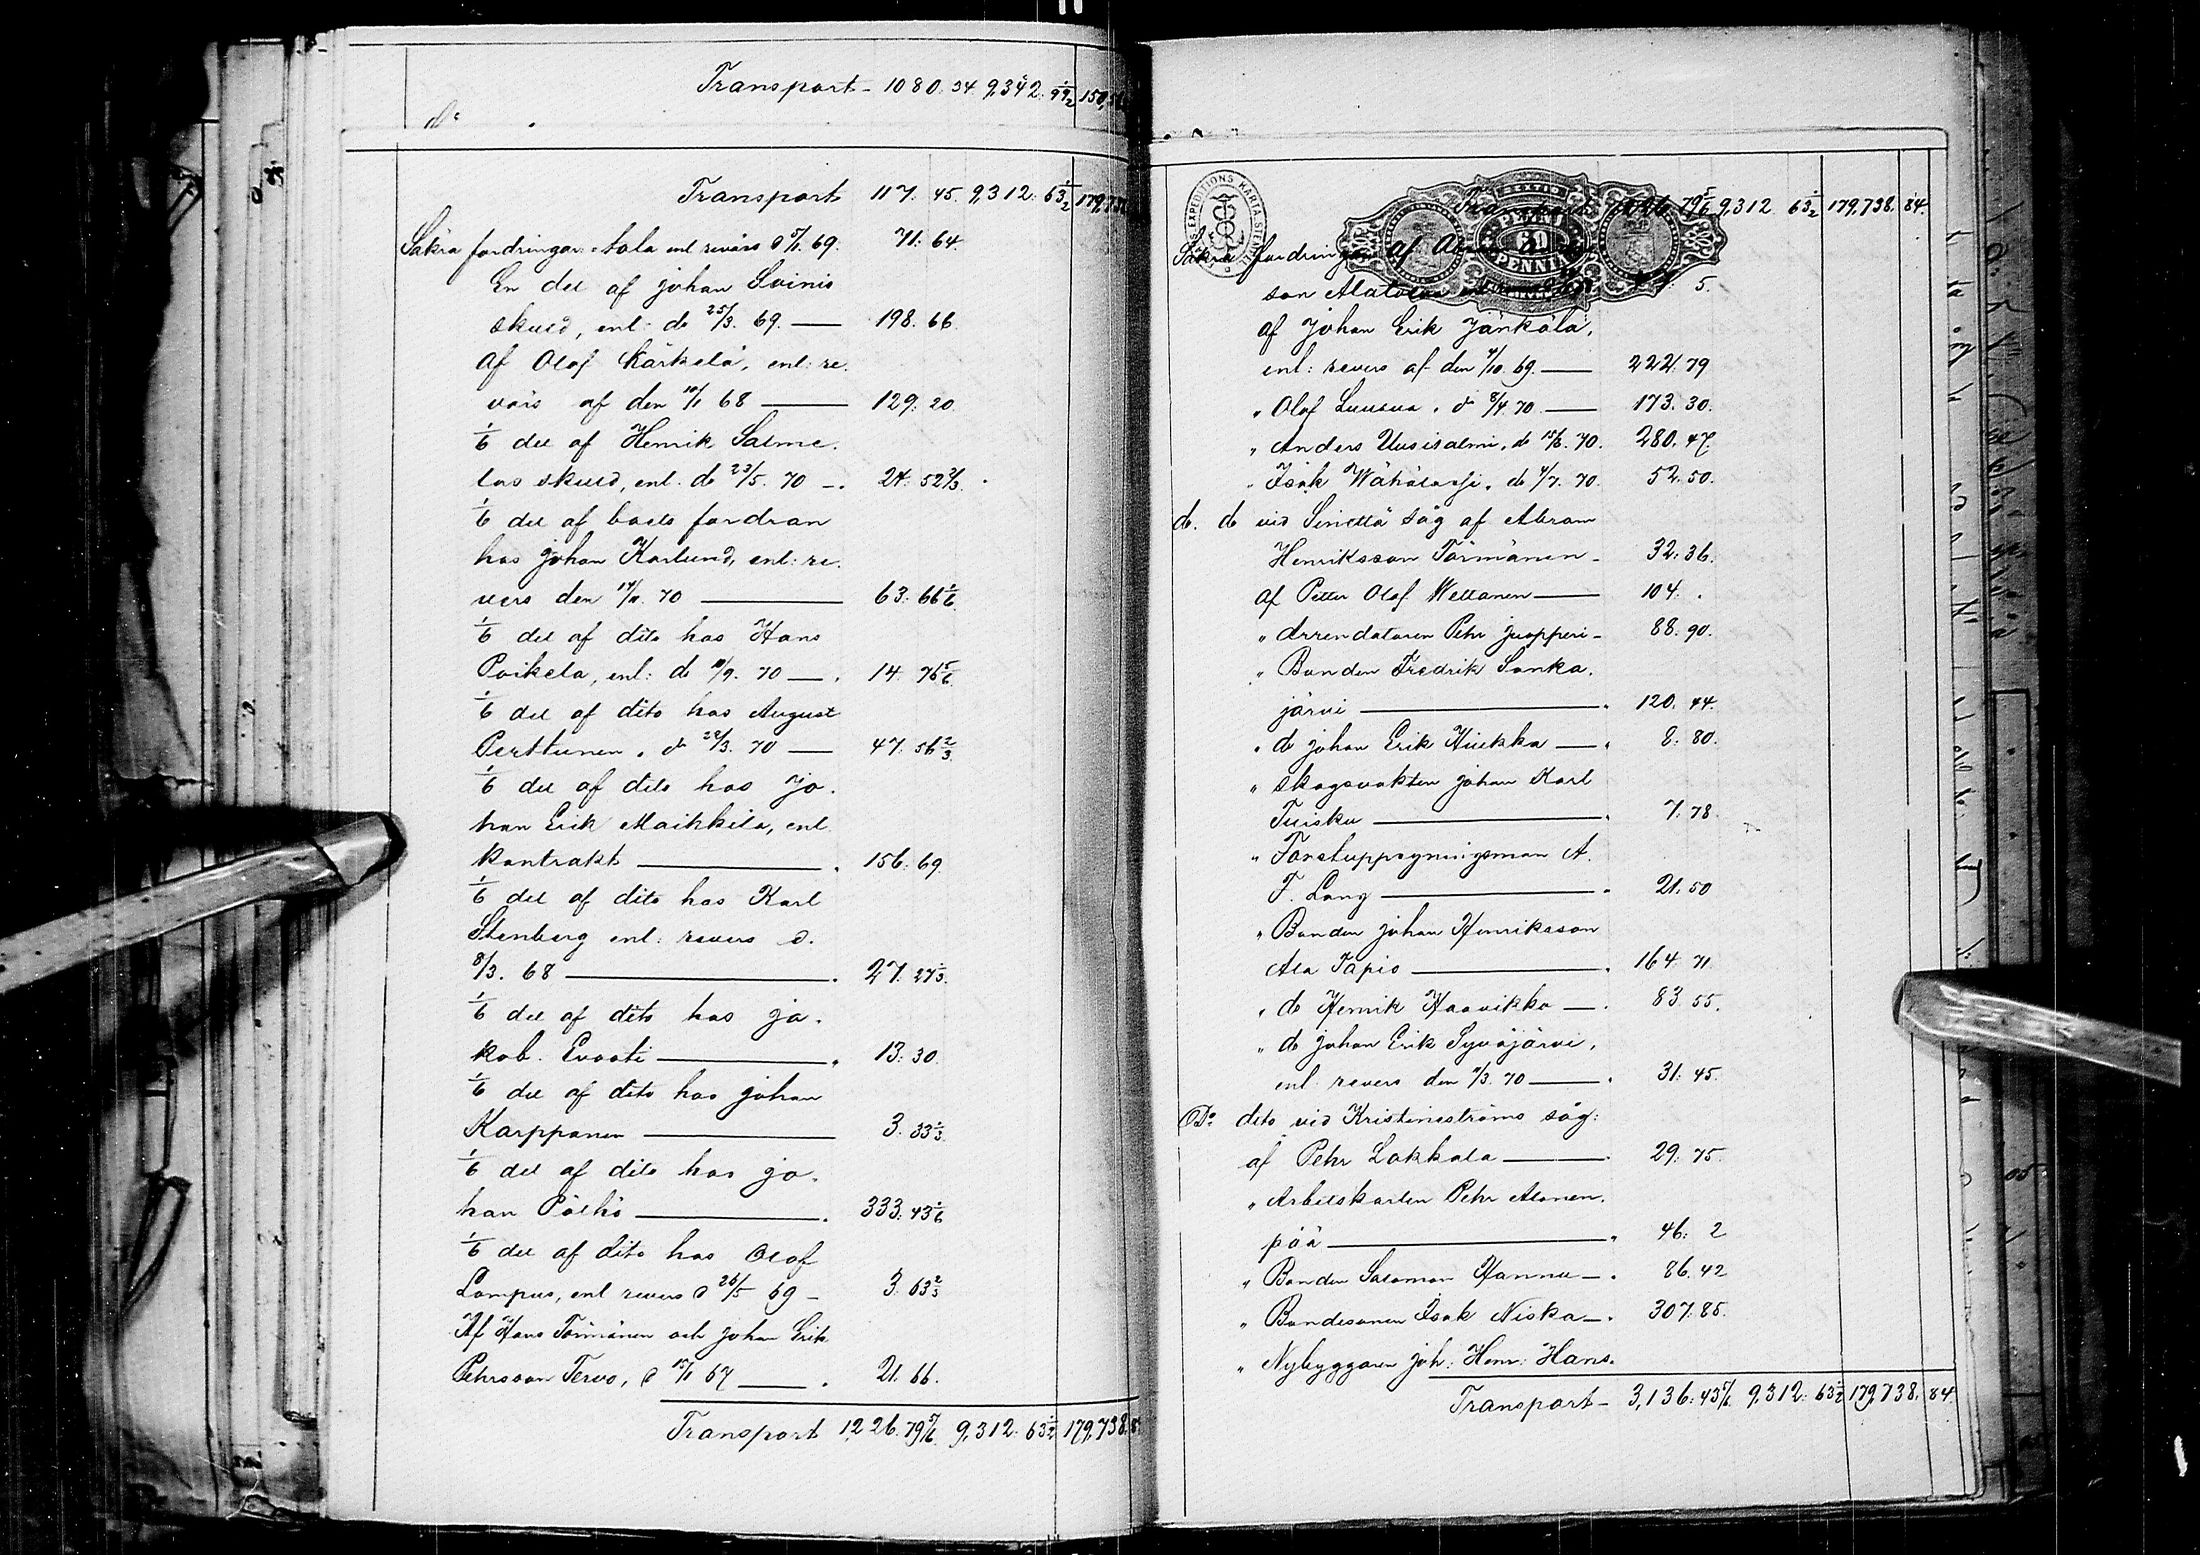 Transport - 1080. 34 9,342. 99 1/2 150,
do
Transport 117. 45. 9,312. 63 1/2 179,738
Säkra fordringar: Aola enl revers d 5/1. 69. 71: 64.
En del af Johan Soinis
skuld, enl: do 25/3. 69. — 198. 66.
af Olof Kärkelä, enl: re.
värs af den 10/1 68 — 129: 20.
1/6 del af Henrik Salme.
las skuld, enl. do 23/5. 70 - . 24: 52 2/3.
1/6 del af boets fordran
hos Johan Karlund, enl: re.
vers den 14/11. 70 — 63: 66 1/6.
1/6 del af dito hos Hans
Poikela, enl: do 11/9. 70 — . 14. 76 5/6.
1/6 del af dito hos August
Perttunen . do 22/3. 70 — 47. 56 2/3.
1/6 del af dito hos Jo.
han Erik Maikkila, enl
kontrakt — . 156. 69.
1/6 del af dito hos Karl
Stenberg enl: revers d.
8/3. 68 — . 27. 27 1/3.
1/6 del af dito hos Ja.
kob. Evasti — . 13: 30.
1/6 del af dito hos Johan
Karppanen — 3. 33 1/3.
1/6 del af dito hos Jo.
han Pälhö — . 333: 43 1/6
1/6 del af dito hos Olof
Lampus, enl revers d 26/5 69 - 3. 63 2/3
Af Hans Törmänen och Johan Erik
Pehrsson Tervo, d 15/1 67 — . 21. 66.
Transport 1226. 79 5/6. 9,312. 63 1/2 179,738.
EXPEDITIONS KARTA
PENNIÄ
79 5/6 9,312 63 1/2 179,738. 84.
Säkra fordringar af
son 5.
af Johan Erik Jänkälä,
enl: revers af den 4/10. 69. — 222. 79
" Olof Luusua . do 8/4. 70. — 173. 30.
" Anders Uusisalmi, do 15/3. 70. 280. 47.
" Isak Wähälaasi, do 4/7. 70. 52. 50.
do. do vid Sinettä såg af Abram
Henriksson Törmänen - 32: 36.
af Petter Olof Mellanen — 104. .
" Arrendatoren Pehr Juopperi - 88. 90.
" Bonden Fredrik Sonka.
järvi — . 120. 44.
" do Johan Erik Hiekka — . 8: 80.
" Skogsvakten Johan Karl
Tuisku — . 7. 78.
" Forstuppsyningsman A.
F. Lang — . 21. 50
" Bonden Johan Henriksson
Ala Tapio — . 164. 71.
" do Henrik Haavikko — . 83. 55.
" do Johan Erik Syväjärvi,
enl. revers den 2/3. 70 — . 31: 45.
Do: dito vid Kristineströms såg:
af Pehr Lakkala — . 29: 75.
" Arbetskarlen Pehr Alanen.
pää — . 46: 2
" Bonden Salomon Hannu — . 86. 42
" Bondesonen Isak Niska — . 307: 85.
" Nybyggaren Joh: Henr: Hans.
Transport - 3,136: 43 5/6. 9,312: 63 1/2 179,738. 84.